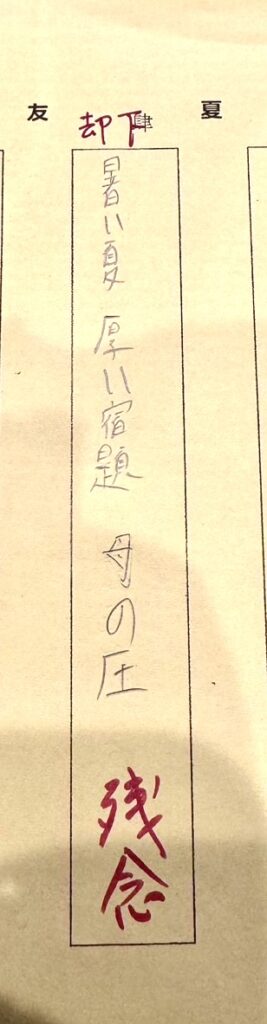 夏
却下
暑い夏 厚い宿題 母の圧
残念
友